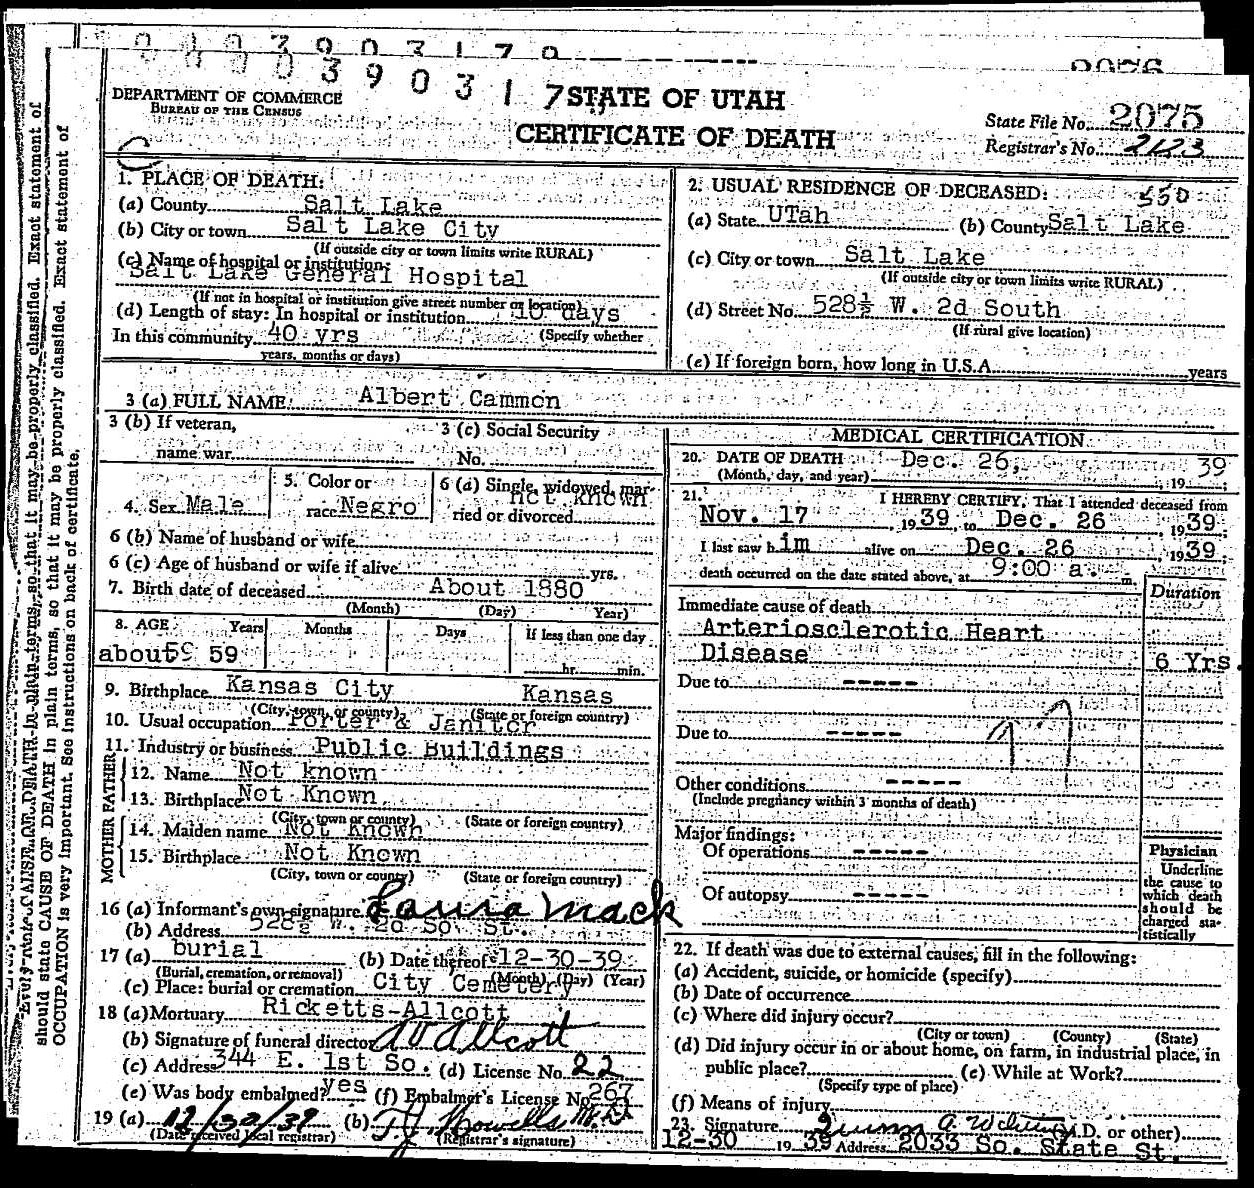 0003903179
000390317
2076
DEPARTMENT OF COMMERCE
BUREAU OF THE CENSUS
STATE OF UTAH
CERTIFICATE OF DEATH
State File No. 2075
Registrar's No. 2123
1. PLACE OF DEATH:
(a) County Salt Lake
(b) City or town Salt Lake City
(If outside city or town limits write RURAL)
(c) Name of hospital or institution:
Salt Lake General Hospital
(If not in hospital or institution give street number or location)
(d) Length of stay: In hospital or institution 10 days
In this community 40 yrs (Specify whether
years, months or days)
2. USUAL RESIDENCE OF DECEASED: 550
(a) State UTah (b) County Salt Lake
(c) City or town Salt Lake
(If outside city or town limits write RURAL)
(d) Street No. 528½ W. 2d South
(If rural give location)
(e) If foreign born, how long in U.S.A. years
3 (a) FULL NAME: Albert Cammon
3 (b) If veteran,
name war
3 (c) Social Security
No.
4. Sex Male
5. Color or
race Negro
6 (a) Single, widowed, mar-
ried or divorced not known
6 (b) Name of husband or wife
6 (c) Age of husband or wife if alive yrs.
7. Birth date of deceased About 1880
(Month) (Day) Year)
8. AGE Years Months Days If less than one day
about 59 hr. min.
9. Birthplace Kansas City Kansas
(City, town, or county) (State or foreign country)
10. Usual occupation Porter & Janitor
11. Industry or business Public Buildings
FATHER
12. Name Not known
13. Birthplace Not Known
(City, town or county) (State or foreign country)
MOTHER
14. Maiden name Not Known
15. Birthplace Not Known
(City, town or county) (State or foreign country)
16 (a) Informant's own signature Laura Mack
(b) Address 528½ W. 2d So. St.
17 (a) burial (b) Date thereof 12-30-39
(Burial, cremation, or removal) (Month) (Day) (Year)
(c) Place: burial or cremation City Cemetery
18 (a) Mortuary Ricketts-Allcott
(b) Signature of funeral director Allcott
(c) Address 344 E. 1st So. (d) License No. 22
(e) Was body embalmed? yes (f) Embalmer's License No. 267
19 (a) 12/30/39 (b) Howells M.D.
(Date received local registrar) (Registrar's signature)
MEDICAL CERTIFICATION
20. DATE OF DEATH Dec. 26, 39
(Month, day, and year) , 19
21. I HEREBY CERTIFY, That I attended deceased from
Nov. 17 , 1939, to Dec. 26 , 1939.
I last saw him alive on Dec. 26 1939.
death occurred on the date stated above, at 9:00 a. m.
Duration
Immediate cause of death
Arteriosclerotic Heart
Disease 6 Yrs.
Due to -----
Due to -----
Other conditions -----
(Include pregnancy within 3 months of death)
Major findings:
Of operations -----
Of autopsy -----
Physician
Underline
the cause to
which death
should be
charged sta-
tistically
22. If death was due to external causes, fill in the following:
(a) Accident, suicide, or homicide (specify)
(b) Date of occurrence
(c) Where did injury occur?
(City or town) (County) (State)
(d) Did injury occur in or about home, on farm, in industrial place, in
public place? (e) While at Work?
(Specify type of place)
(f) Means of injury
23. Signature Quinn A. (M.D. or other)
12-30 19 39 Address 2033 So. State St.
should state CAUSE OF DEATH in plain terms, so that it may be properly classified. Exact statement of
OCCUPATION is very important. See instructions on back of certificate.